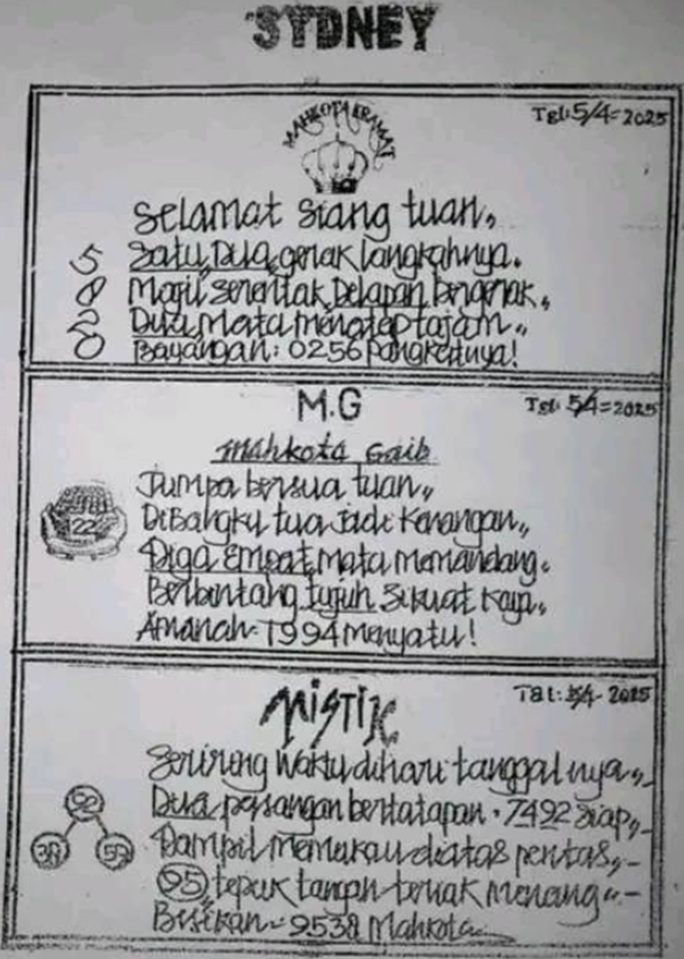 SYDNEY
MAHKOTA KRAMAT
Tgl: 5/4=2025
Selamat siang tuan,,
5 Satu, Dua, gerak langkahnya.
8 Majil serentak, Delapan bergerak,,
2 Dua, Mata menatap tajam,,
0 Bayangan: 0256 pangkatnya!
M.G
Tgl: 5/4=2025
Mahkota Gaib
Jumpa bersua tuan,,
22 DiBangku tua Jadi Kenangan,,
Diga Empat, mata memandang.
Berbintang tujuh sekuat Raja,,
Amanah: 1994 menyatu!
MISTIK
Tgl: 5/4- 2025
Seriring Waktu dihari tanggalnya,,-
92 Dua pasangan bertatapan. 7492 siap,,-
38 57 Tampil memukau diatas pentas,,-
95, tepuk tangan teriak menang,,-
Bisikan= 9538 Mahkota